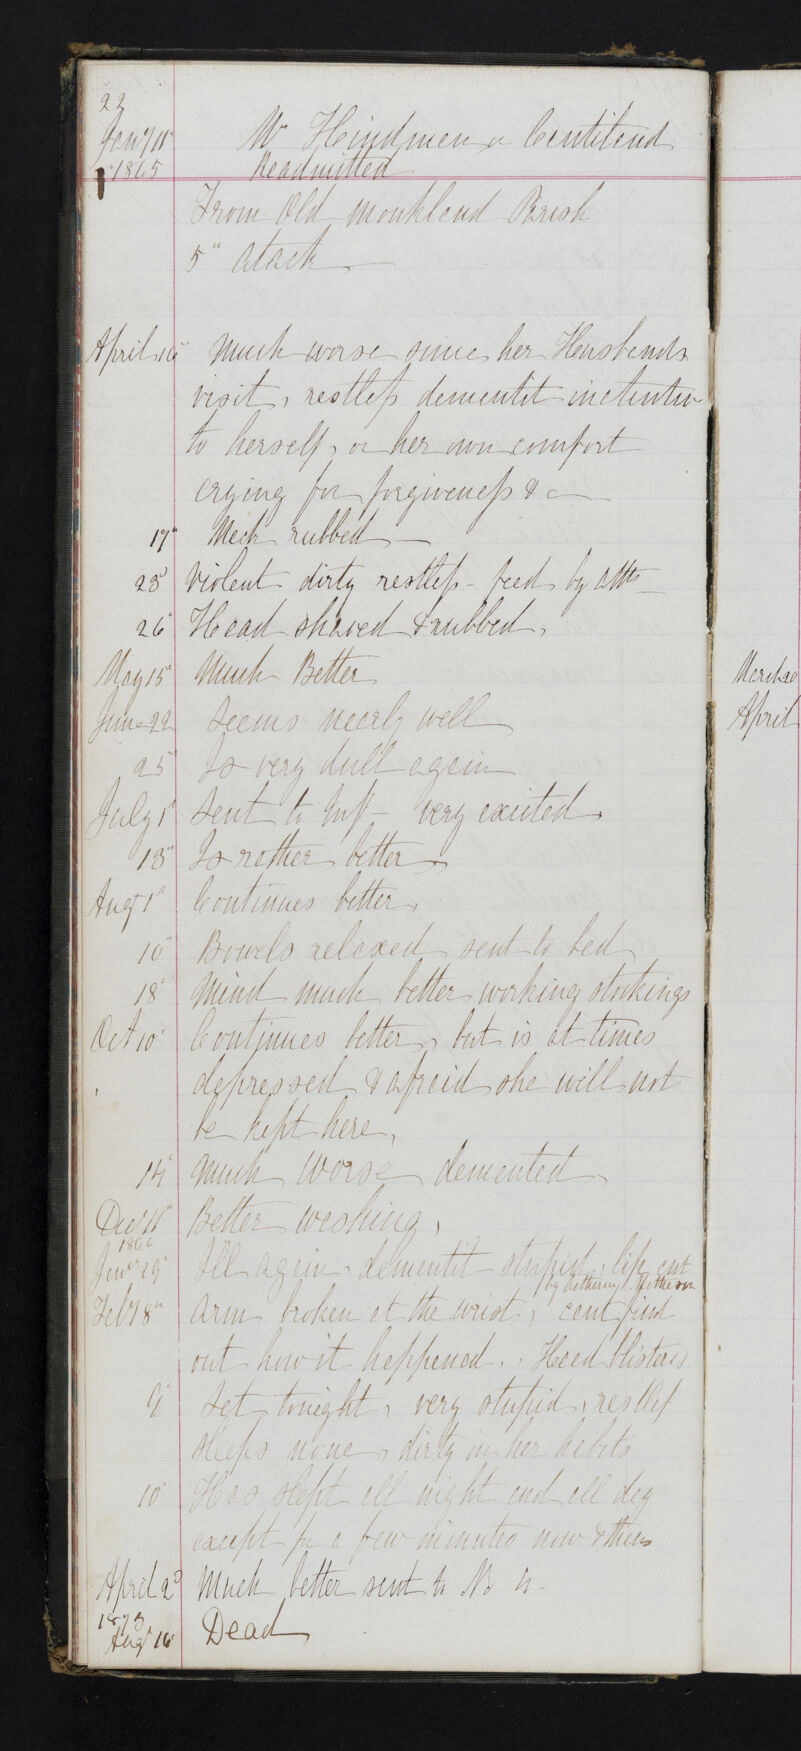 22
Jany 11 1865
Mrs Hindmen or Centilend
Readmitted
From Old Monklend Parish
5" atack
April 16 Much worse since her Husbands
visit, restless dementit inctentiv
to herself, or her own comfort
crying for forgiveness & c
17" Neck rubbed
23 Violent dirty restless - feed by Atts
26 Head shaved & rubbed,
May 15 Much Better
June 22 Seems neerly well
25 Is very dull again
July 1st Sent to Inf - very excited
13" Is rether better
Augt 1st Continues better,
10" Bowels relaxed sent to bed
18 Mind much better working stokings
Oct 10 Continues better, but is at times
depressed & afreid she will not
be kept here,
14 Much worse demented,
Decr 11" Better weshing,
1866
Jenr 29 Ill again, dementit stupid, lip cut
by Petherson
Feby 8" Arm broken at the wrist, cent find
out how it heppened. Heed blisters
9" Set tonight, very stupid, restless
sleeps none, dirty in her hebits
10" Has slept all night end all dey
except for a few minutes now & then
April 2d Much better sent to No 4 -
1873
Augt 16 Dead
March 20
April